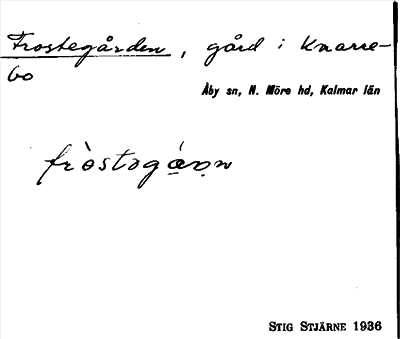 Frostegården, gård i Knarre-
bo
Åby sn, N. Möre hd, Kalmar län
fròstəgáṇ
STIG STJÄRNE 1936